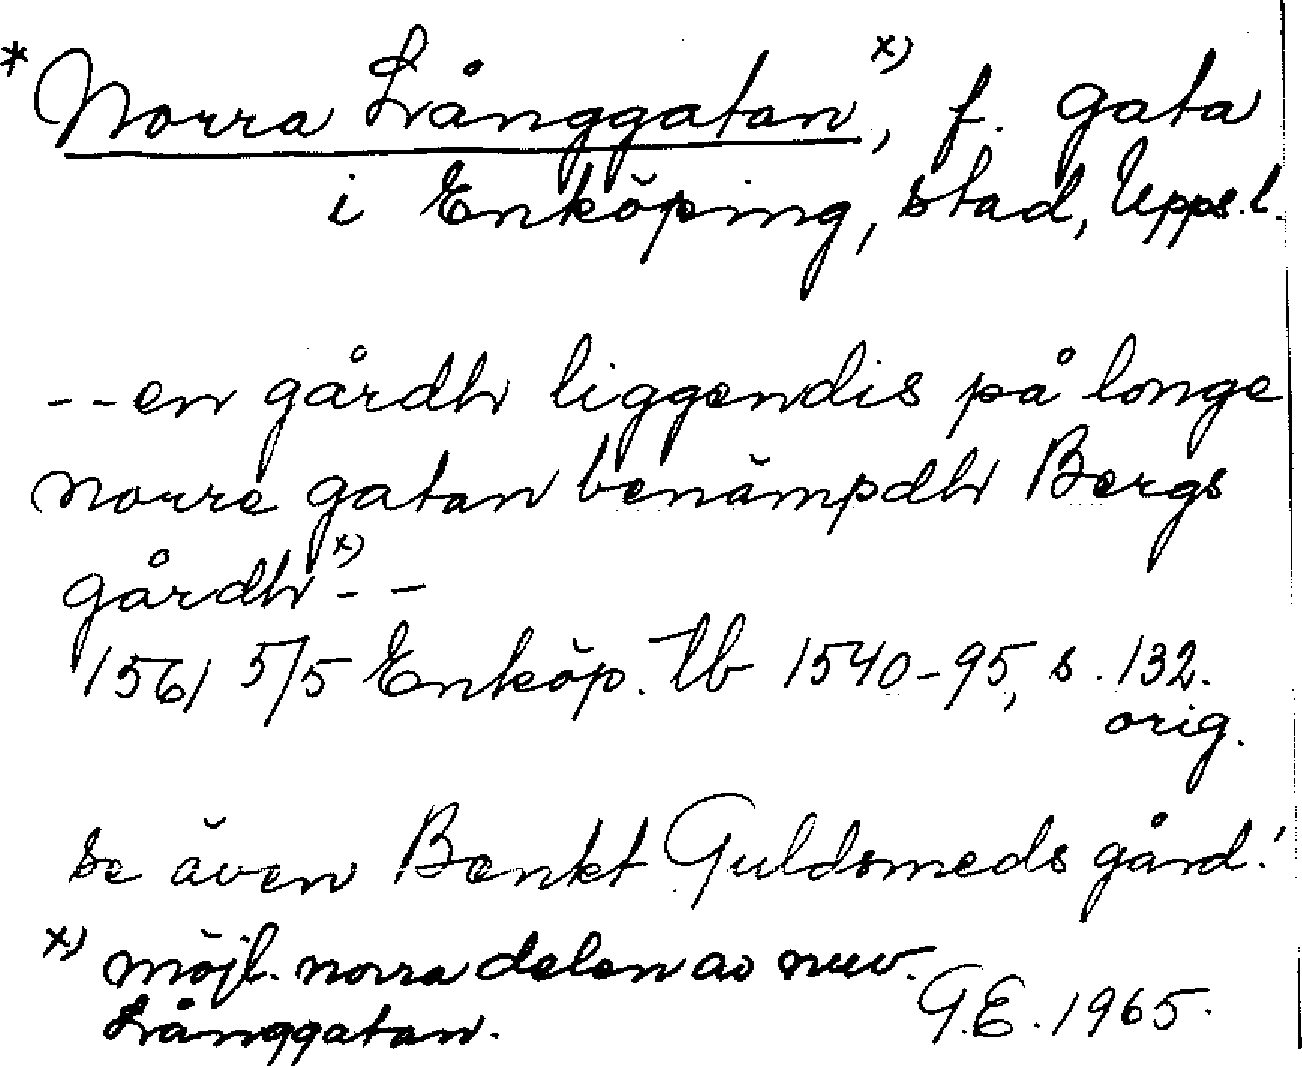 * Norra Långgatan x), f. gata
i Enköping, stad, Upps. l.
-- en gårdh liggendis på longe
norre gatan benämpdh Bergs
gårdh x) --
1561 5/5 Enköp. Tb 1540-95, s. 132.
orig.
se även Benkt Guldsmeds gård!
x) möjl. norra delen av nuv.
Långgatan.
G.E. 1965.